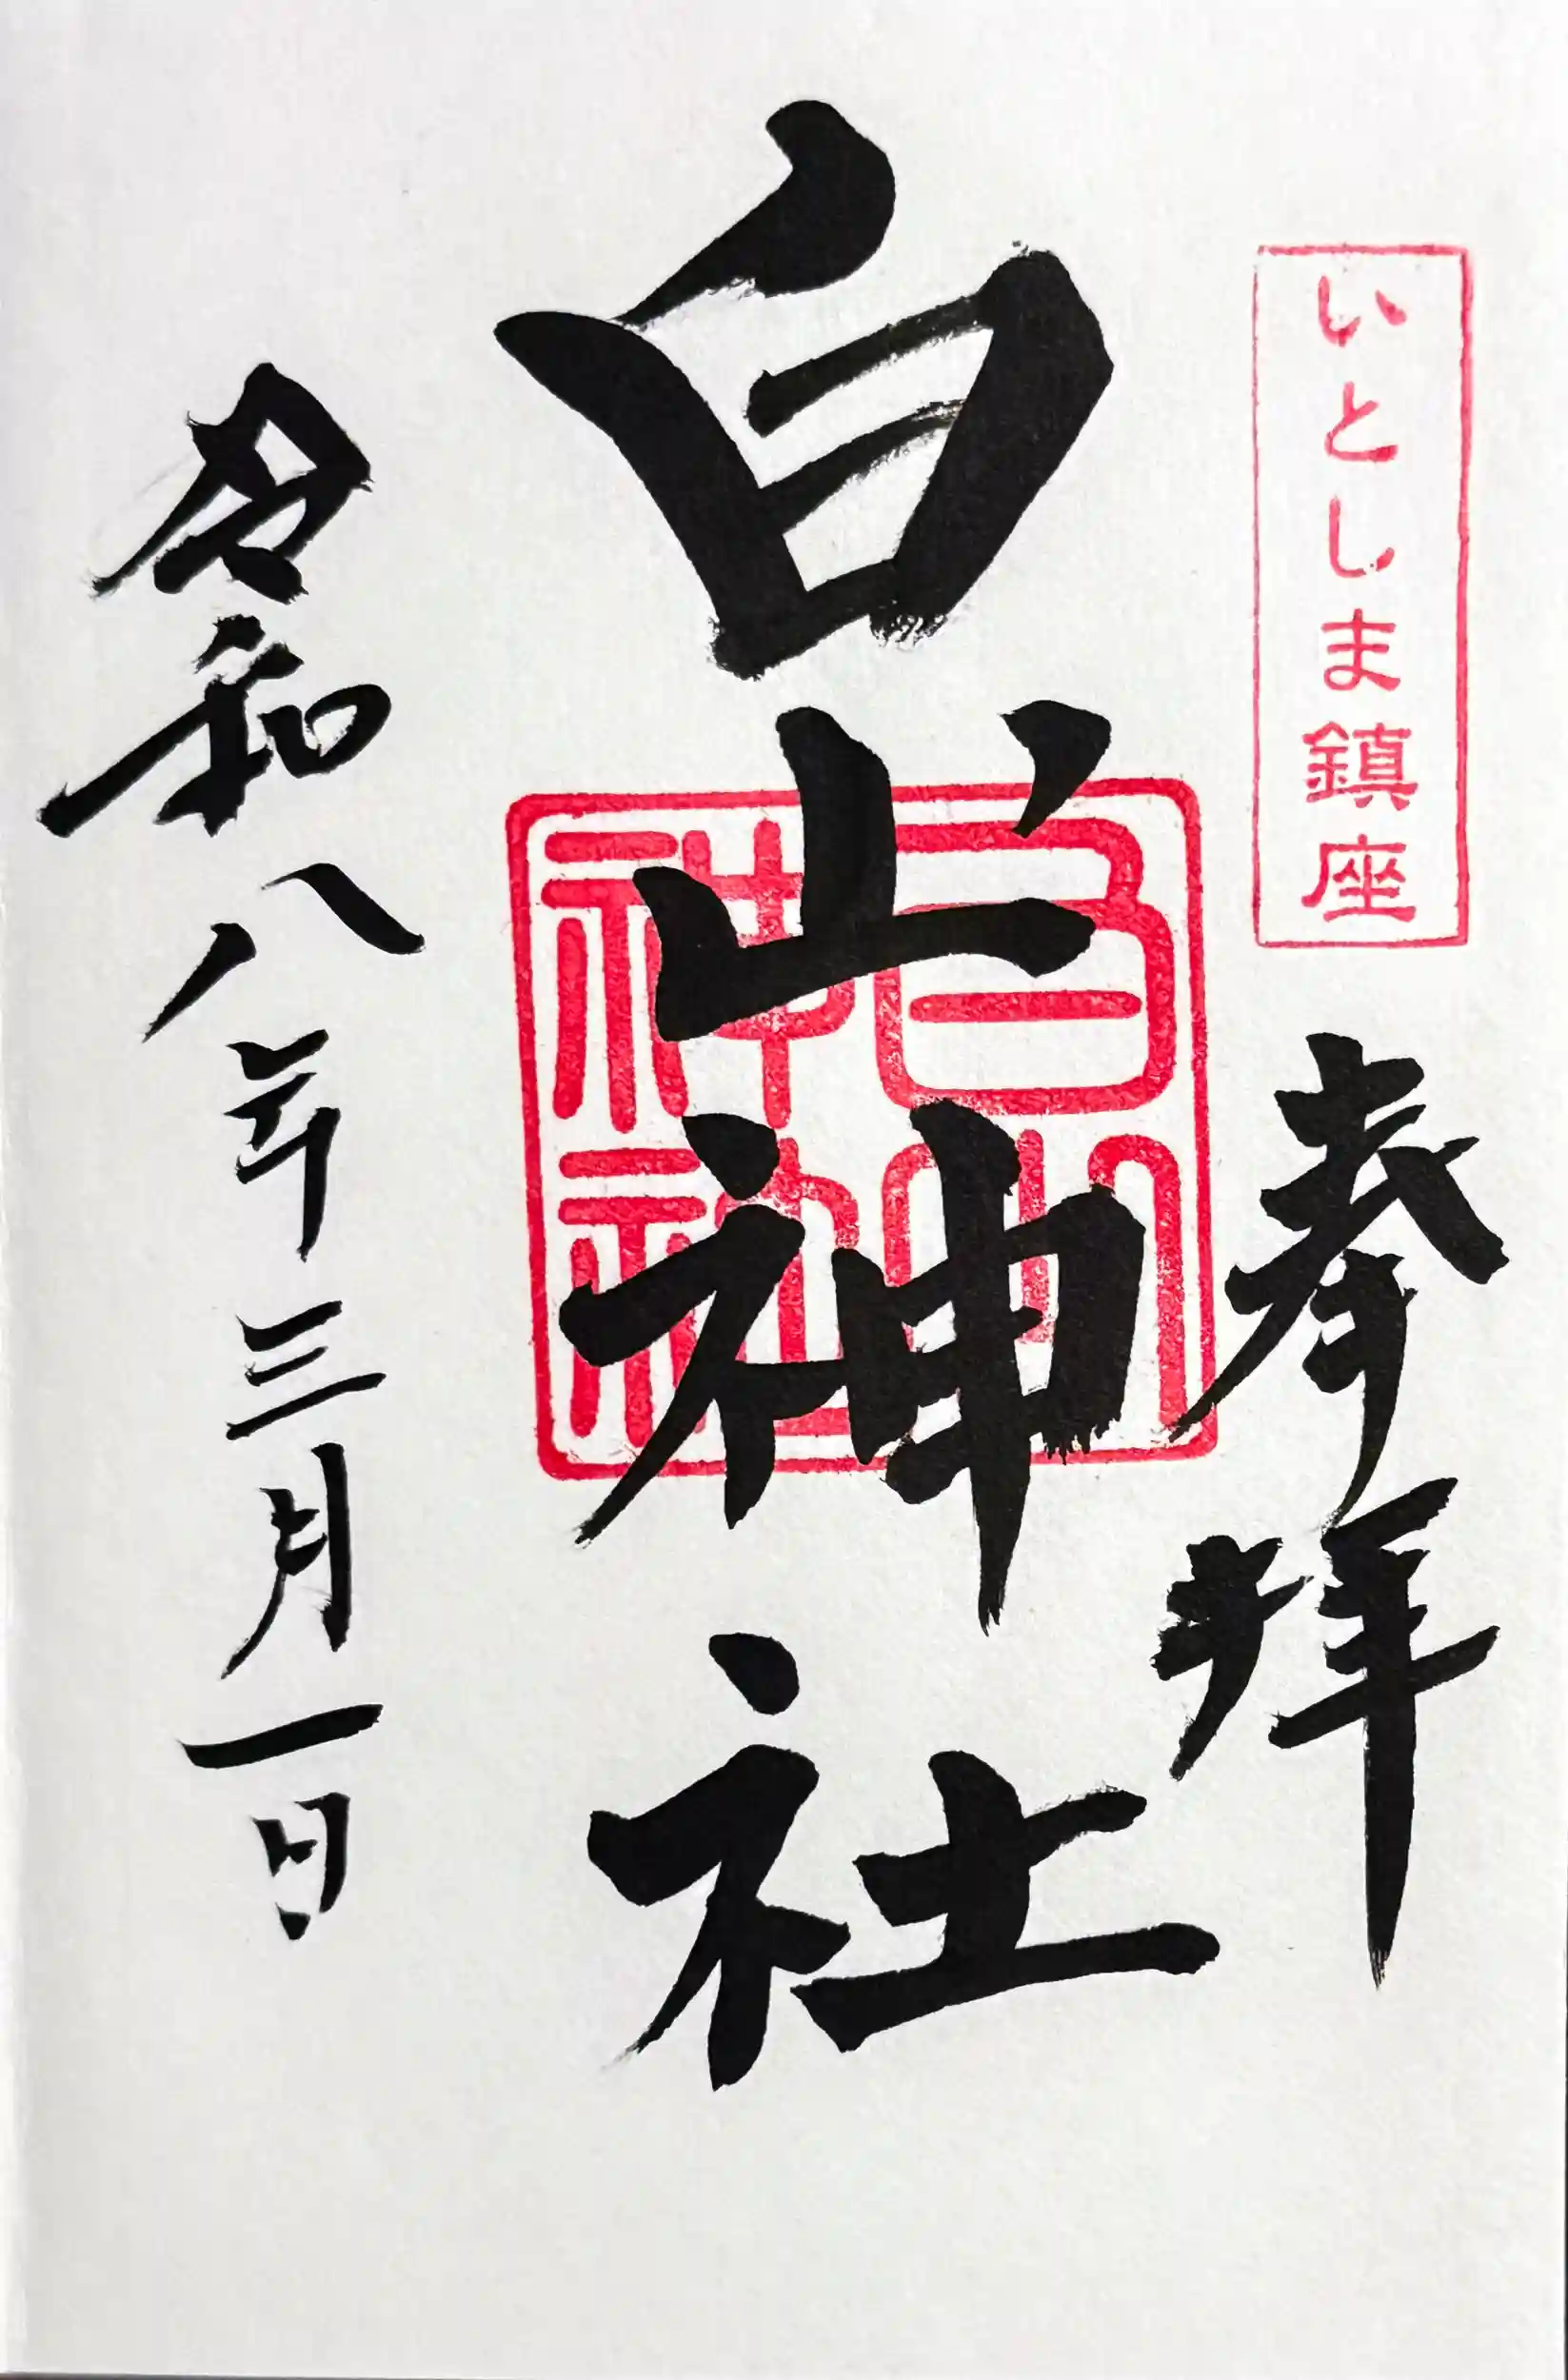 いとしま鎮座
奉拝
白山神社
白山
神社
令和八年三月一日